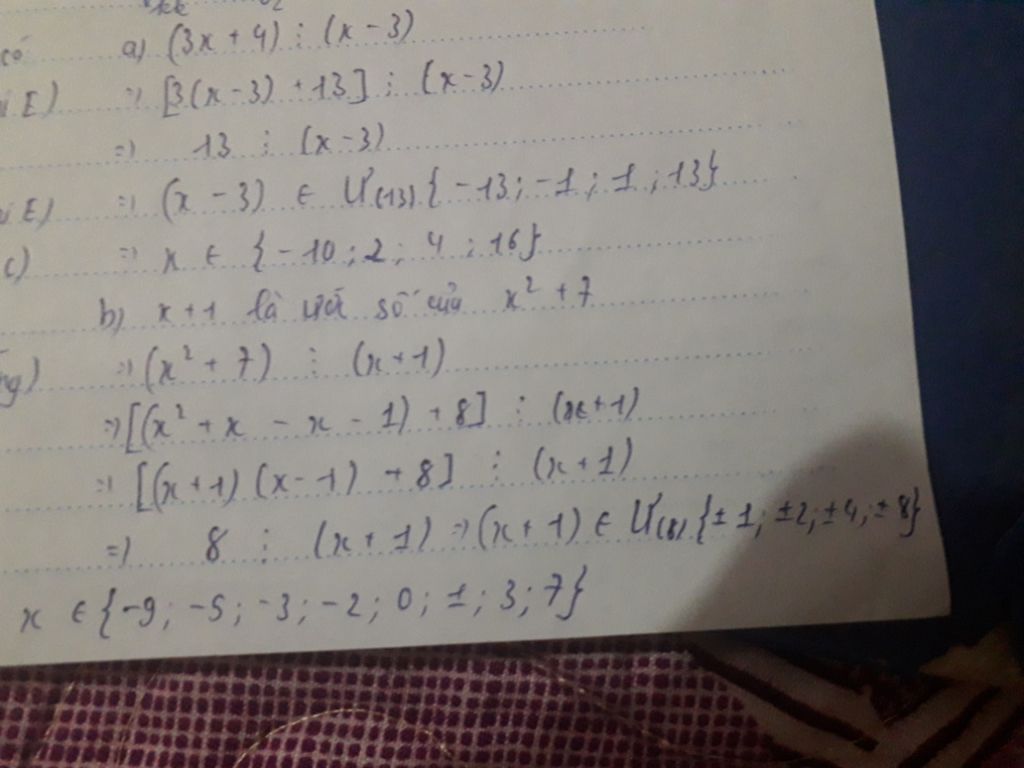 có a) (3x + 4) ⋮ (x - 3)
E) => [3(x-3) + 13] ⋮ (x-3)
=> 13 ⋮ (x-3)
E) => (x - 3) ∈ Ư(13) {-13; -1; 1; 13}
c) => x ∈ {-10; 2; 4; 16}
b) x+1 là ước số của x² + 7
=> (x² + 7) ⋮ (x+1)
=> [(x² + x - x - 1) + 8] ⋮ (x+1)
=> [(x+1)(x-1) + 8] ⋮ (x+1)
=> 8 ⋮ (x+1) => (x+1) ∈ Ư(8) {±1; ±2; ±4; ±8}
x ∈ {-9; -5; -3; -2; 0; 1; 3; 7}